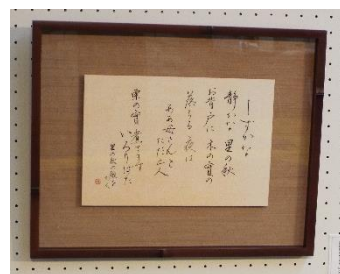 しずかな
静かな 里の秋
お背戸に 木の実の
落ちる 夜は
ああ母さんと
ただ二人
栗の実 煮てます
いろりばた
里の秋の歌